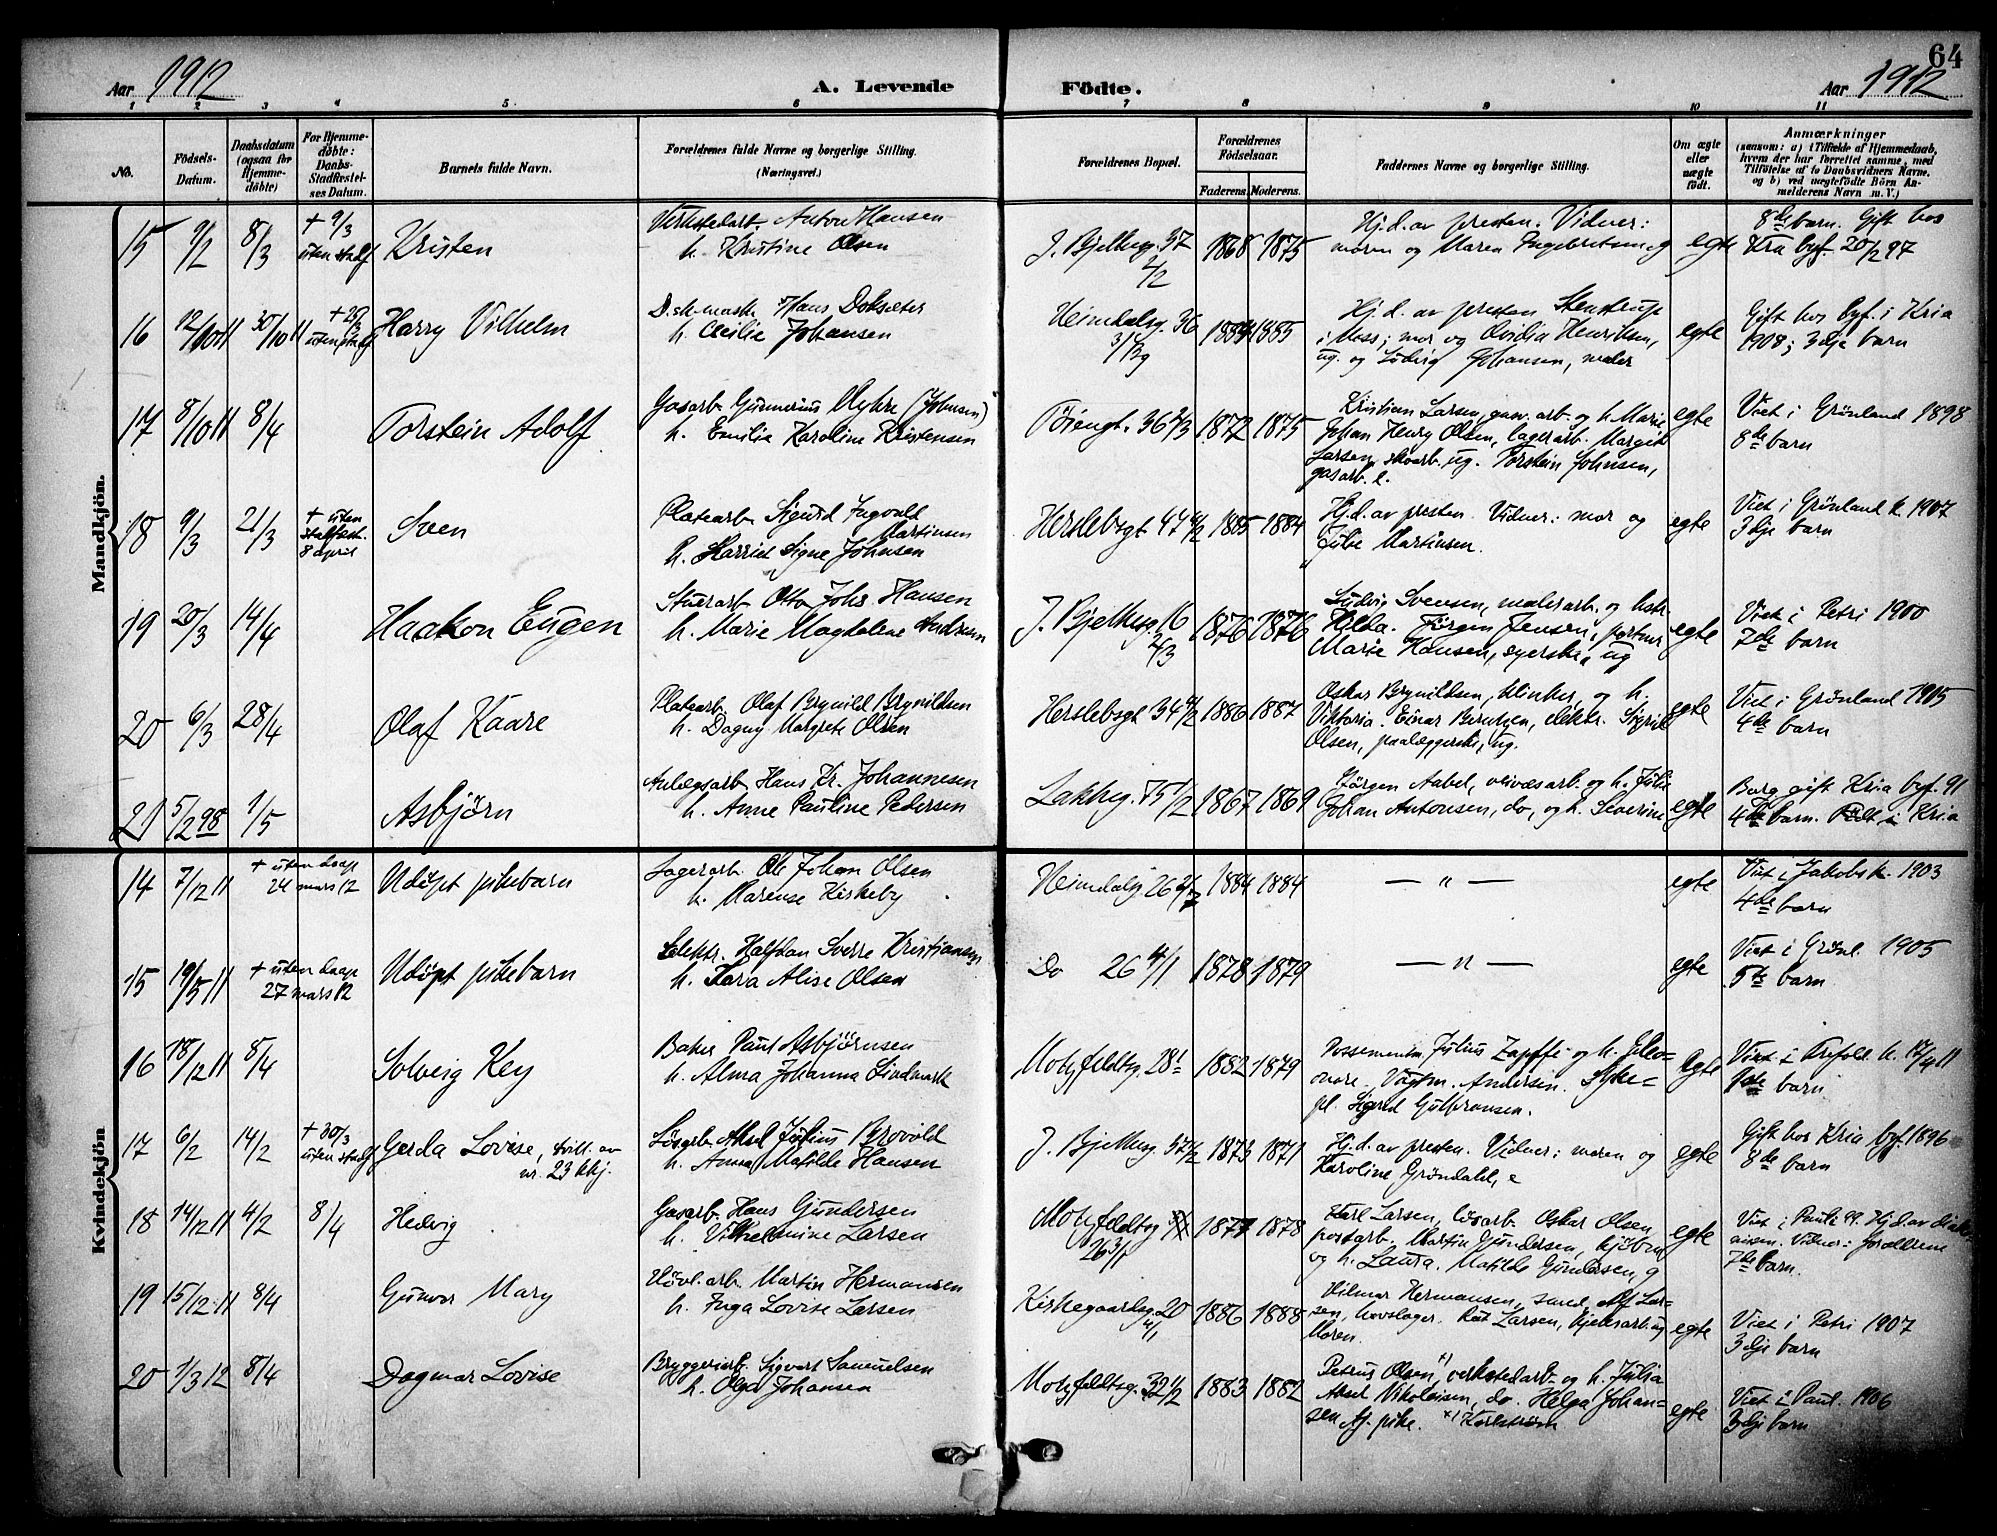 64
Aar 1912
A. Levende
Födte.
Aar 1912
1 2 3 4 5 6 7 8 9 10 11
No.
Födsels-
Datum.
Daabsdatum
(ogsaa for
Hjemme-
döbte)
For Hjemme-
döbte:
Daabs-
Stadfæstel-
ses Datum.
Barnets fulde Navn.
Forældrenes fulde Navne og borgerlige Stilling.
(Næringsvei.)
Forældrenes Bopæl.
Forældrenes
Födselsaar.
Faderens. Moderens.
Faddernes Navne og borgerlige Stilling.
Om ægte
eller
uægte
födt.
Anmærkninger
(saasom: a) i Tilfælde af Hjemmedaab,
hvem der har forrettet samme, med
Tilföielse af to Daabsvidners Navne.
og b) ved uægtefödte Börn An-
melderens Navn m. V.)
Mandkjön.
15 9/2 8/3 + 9/3
uten stadf
Kristen
Verkstedarb. Anton Hansen
h. Kristine Olsen
J. Bjelkesg. 37
4/2
1868 1875
Hj.d. av presten. Vidner:
moren og Maren Ingebretsen ug
egte
8de barn. Gift hos
Kra byf. 20/2 97
16 12/10 11 30/10 11
Harry Vilhelm
Hans Dokseter
h. Cecilie Johansen
Heimdalsg. 36
1885
Hj.d. av presten Stenstrup
i Moss; mor og Ovidia Henriksen,
ug. og Ludvig Johansen, maler
egte
Gift hos byf. i Kria
1908; 3dje barn
17 8/10 11 8/4
Torstein Adolf
Gasarb. Gunnerius Myhre (Johnsen)
h. Emilie Karoline Kristensen
Töiengt. 36 4/3
1872 1875
Kristian Larsen, gasv. arb. og h. Marie
Johan Henry Olsen, lagerarb. Margit
Larsen, skoarb. ug. Torstein Johnsen,
gasarb. e.
egte
Viet i Grönland 1898
8de barn
18 9/3 21/3 + uten
stadfest.
8 april
Sven
Platearb. Sigurd Ingvald
Martinsen
h. Harriet Signe Johnsen
Herslebsgt 47 4/2
1885 1884
Hj.d. av presten. Vidner: mor og
Julie Martinsen.
egte
Viet i Grönland k. 1907
3dje barn
19 20/3 14/4
Haakon Eugen
Stuerarb. Otto Johs Hansen
h. Marie Magdalene Andersen
J. Bjelkesg. 16
2/3
1876 1876
Ludvig Svensen, malerarb. og hstr.
Hilda. Jörgen Jensen, portner
Marie Hansen, syerske, ug
egte
Viet i Petri 1900
7de barn
20 6/3 28/4
Olaf Kaare
Platearb. Olaf Brynild Brynildsen
h. Dagny Margrete Olsen
Herslebsgt 34 4/2
1886 1887
Oskar Brynildsen, klinker, og h.
Viktoria. Einar Berntzen, elektr. Sigrid
Olsen, paalæggerske, ug.
egte
Viet i Grönland 1905
4de barn
21 5/2 98 1/5
Asbjörn
Anlægsarb. Hans Kr. Johannesen
h. Anne Pauline Pedersen
Lakkeg. 75 1/2
1867 1869
Jörgen Aabel, veivæsarb. og h. Julie
Johan Antonsen, do, og h. Severine
egte
Borg. gift Kria byf. 91
4de barn. Födt i Kria
Kvindekjön
14 7/12 11 + uten daap
24 mars 12
Udöpt pikebarn
Lagerarb. Ole Johan Olsen
h. Marense Kirkeby
Heimdalsg 26 2/2
1884 1884
— „ —
egte
Viet i Jakobs k. 1903
4de barn
15 19/5 11 + uten daap
27 mars 12
Udöpt pikebarn
Elektr. Halfdan Sverre Kristiansen
h. Lara Alise Olsen
Do 26 4/1
1878 1879
— „ —
egte
Viet i Grönl. 1905
5te barn
16 18/12 11 8/4
Solveig Key
Baker Paul Asbjörnsen
h. Alma Johanna Lindmark
Motzfeldtsg. 28 1
1882 1879
Possementm. Julius Zapffe og h. Eleo-
nore. Vogtm. Andersen. Syke-
pl. Sigrid Gulbransen.
egte
Viet i Trefold. k. 17/4 11
1ste barn
17 6/2 14/2 + 30/3
uten stadf
Gerda Lovise, tvill. av
nr. 23 kkj.
Lösarb. Aksel Julius Brovold
h. Anna Matilde Hansen
J. Bjelkesg. 57 4/2
1873 1871
Hj.d. av presten. Vidner: moren og
Karoline Gröndahl, e
egte
Gift hos Kria byf. 1896
8de barn
18 14/12 11 4/2 8/4
Hedvig
Gasarb. Hans Gundersen
h. Vilhelmine Larsen
Motzfeldtsg
26 3/1
1877 1878
Karl Larsen, lösarb. Oskar Olsen
postarb. Martin Gundersen, kjöbm
og h. Laura. Matilde Gundersen, g
egte
Viet i Pauli 99. Hj.d. av diako-
nissen. Vidner: foreldrene
7de barn.
19 15/12 11 8/4
Gunvor Mary
Hövl. arb. Martin Hermansen
h. Inga Lovise Larsen
Kirkegaardsg. 20
4/1
1886 1888
Hilmar Hermansen, smed, Alf Lar-
sen, hovslager. Rut Larsen, kjeksarb. ug
Moren.
egte
Viet i Petri 1907
3dje barn
20 1/3 12 8/4
Dagmar Lovise
Bryggeriarb. Sigvart Samuelsen
h. Olga Johansen
Motzfeldtsg. 32 1/2
1883 1882
Petrus Olsen x), verkstedarb. og h. Julia
Aksel Nikolaisen, do. Helga Johan-
sen tj. pike. x) Karlström
egte
Viet i Paul. 1906
3dje barn